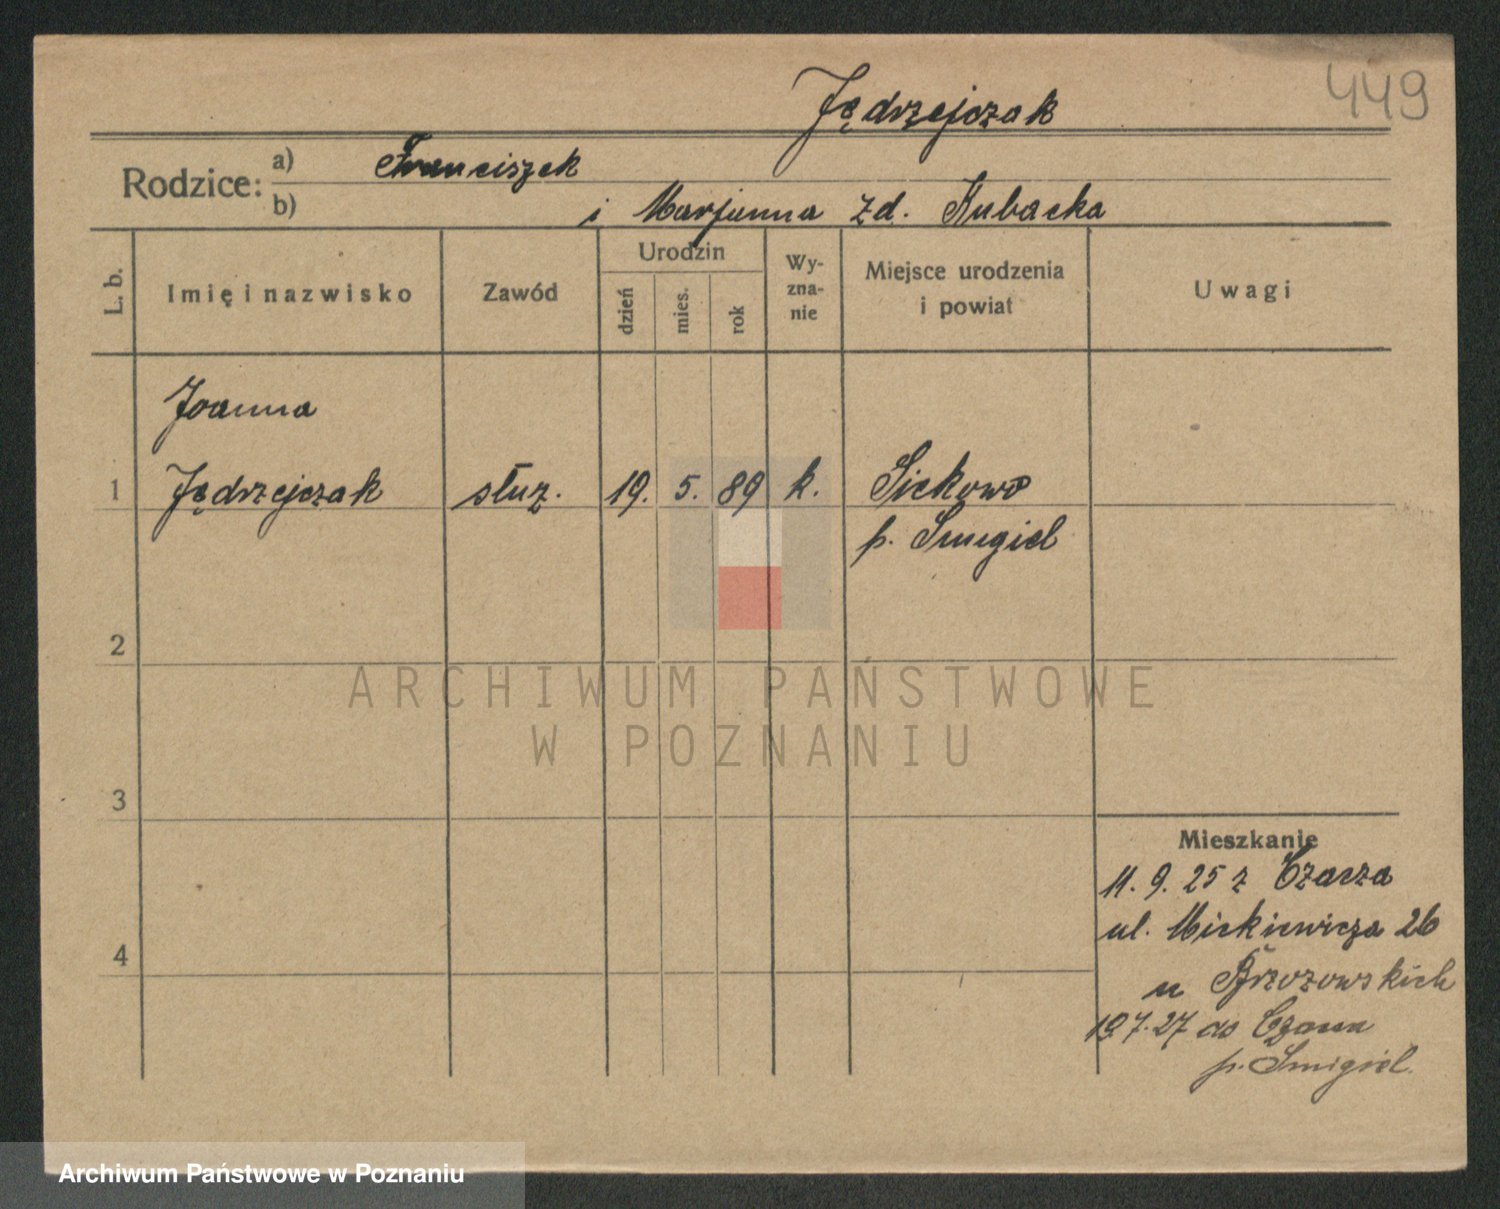 449
Jędrzejczak
Rodzice: a) Franciszek
b) i Marjanna zd. Kubacka
L. b.
Imię i nazwisko
Zawód
Urodzin
dzień
mies.
rok
Wy-
zna-
nie
Miejsce urodzenia
i powiat
Uwagi
Joanna
1 Jędrzejczak służ. 19. 5. 89 k. Siekowo
p. Smigiel
2
ARCHIWUM PAŃSTWOWE
W POZNANIU
3
Mieszkanie
11. 9. 25 z Czacza
ul. Mickiewicza 26
4
u Brzozowskich
19.7.27 do Czacza
p. Smigiel.
Archiwum Państwowe w Poznaniu